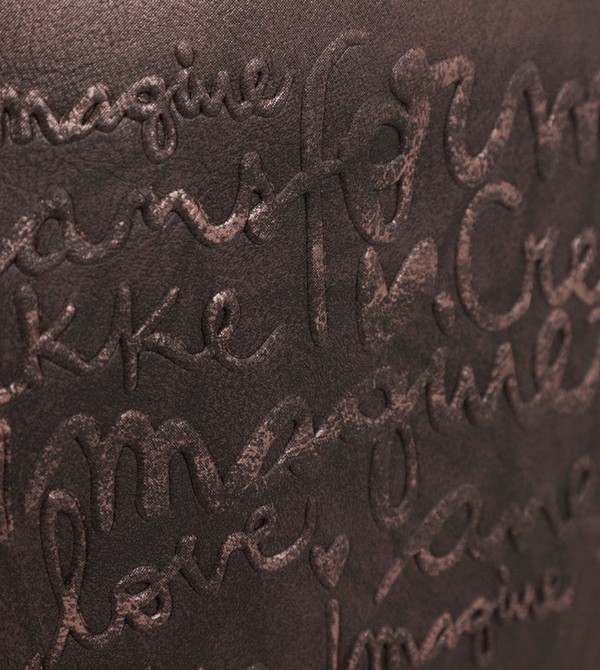 imagine
ansform
kke
. Cre
imagine
love and
Imagine